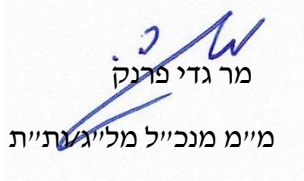 מר גדי פרנק
מ״מ מנכ״ל מל״ג/ות״ת